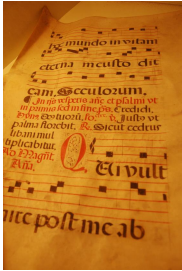 hc mundo in vitam
eterna m custo dit
cam. Seculorum.
In ijs vesperis añe et psalmi vt
in primis
Credidi,
Justo vt
palma florebit, R. Sicut cedrus
libani mul
tiplicabitur.
Ad Magnif.
Aña.
Qui vult
nire post me ab